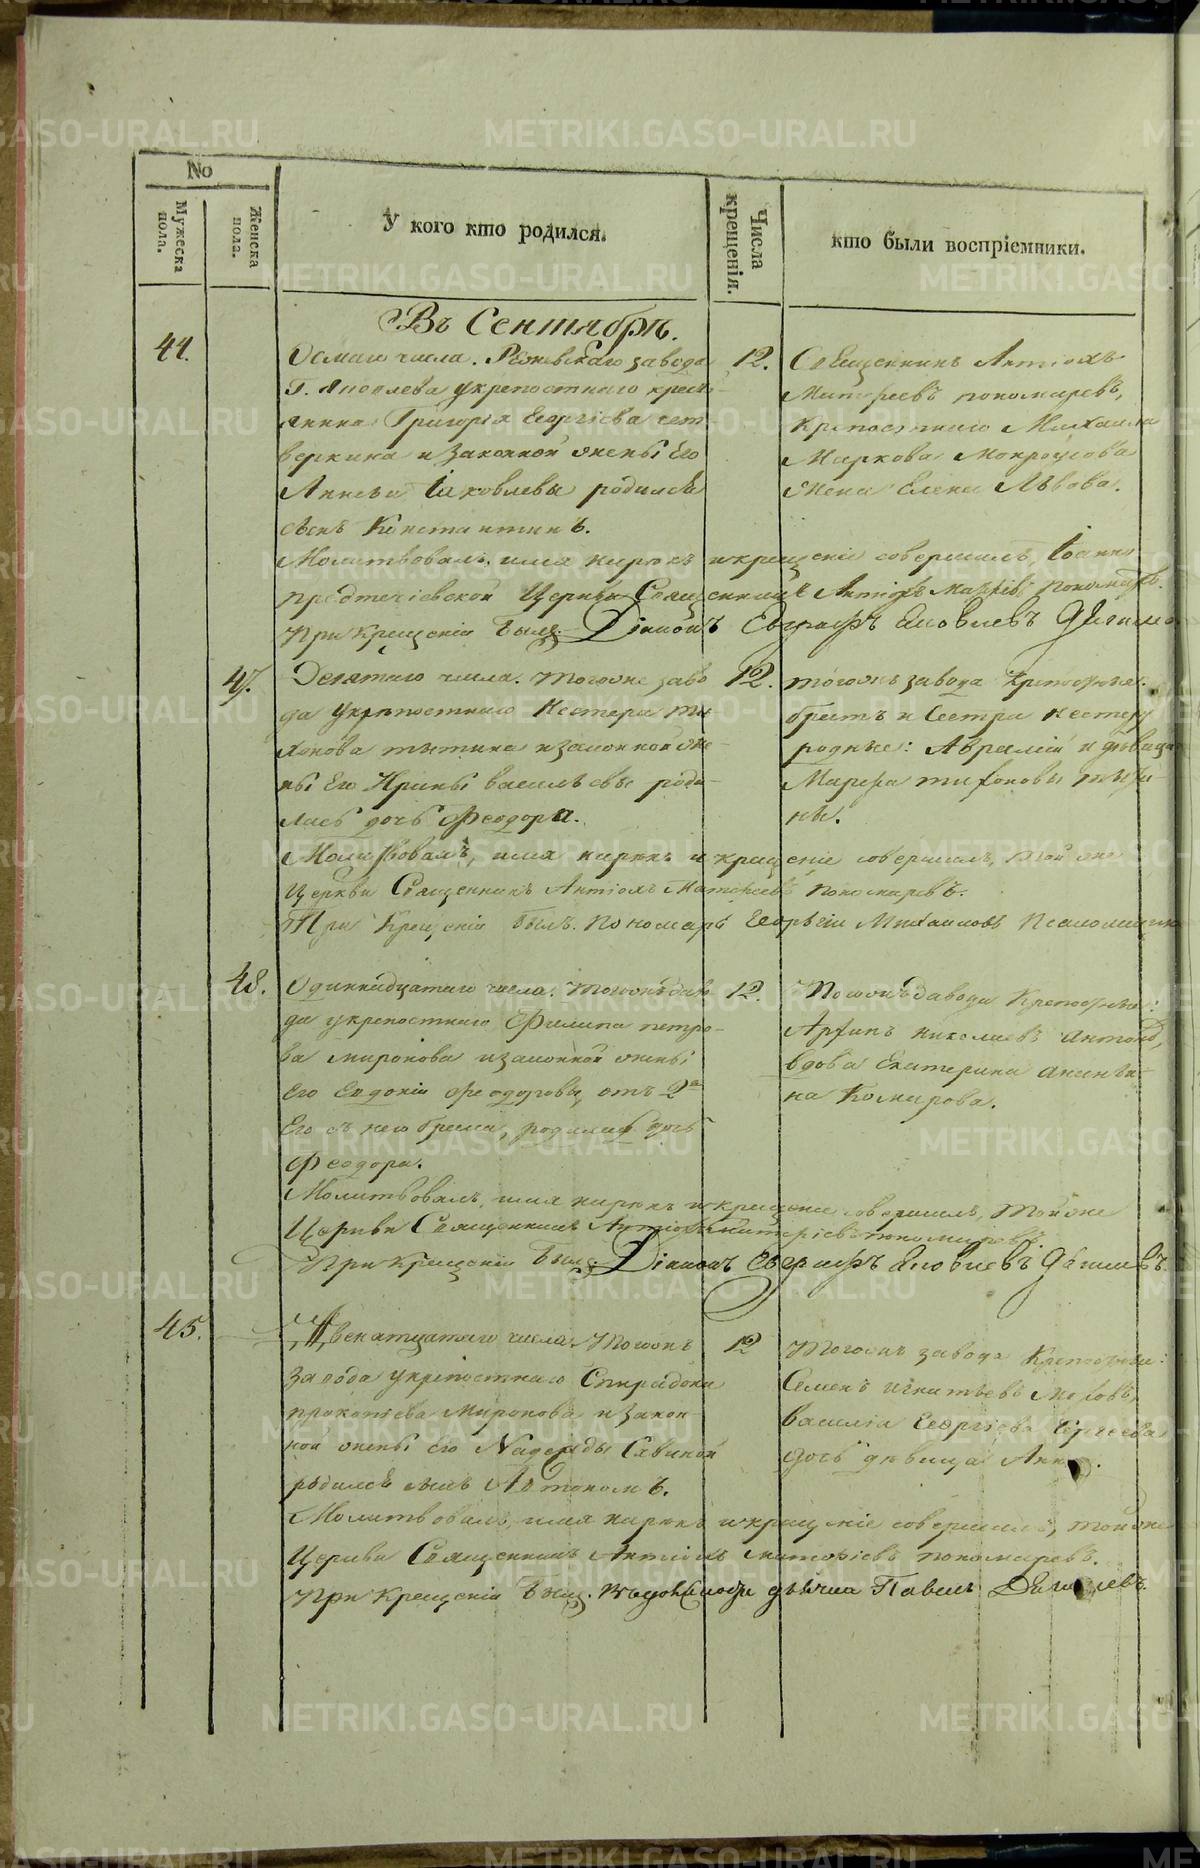 No
Мужеска пола.
Женска пола.
У кого кто родился.
Числа крещенія.
кто были воспріемники.
Въ Сентябрѣ.
44.
Осмаго числа. Режевскаго завода
Г. Яковлева укрепостнаго кресть-
янина Григорія Георгіева чет
веркина и законной жены Его
Анны Іаковлевы родился
сынъ Константинъ.
12.
Священникъ Антіохъ
Матѳеевъ пономаревъ,
крепостнаго Михаила
Маркова Мокроусова
жена Елена Львова.
Молитвовалъ, имя нарекъ и крещеніе совершилъ, Іоанно
предтечіевской Церкви Священникъ Антіохъ Матѳеевъ пономаревъ.
При Крещеніи былъ Діаконъ Евграфъ Яковлевъ
47.
Десятаго числа. тогоже заво
да укрепостнаго Нестера ти
хонова тытина и законной же-
ны Его Ирины василъевы роди-
лась дочь Ѳеодора.
12.
тогожъ завода крепостныя:
братъ и Сестра нестеру
родные: Аврамій и дѣвица
Марѳа тихоновы тыти-
ны.
Молитвовалъ, имя нарекъ и крещеніе совершилъ, той же
Церкви Священникъ Антіохъ Матѳеевъ пономаревъ.
При Крещеніи былъ. Пономарь Георгій Михаиловъ
48.
Одиннадцатаго числа. Тогожъ заво
да укрепостнаго Филипа петро-
ва миронова изаконной жены
Его Евдокіи Ѳеодоровы, отъ 2го
Его съ нею брака, родилась дочь
Ѳеодора.
12.
Тогожъ завода Крепостные:
Архипъ николаевъ
вдова Екатерина
на Комарова.
Молитвовалъ, имя нарекъ и крещеніе совершилъ, Тойже
Церкви Священникъ Антіохъ Матѳеевъ пономаревъ.
При Крещеніи былъ Діаконъ Евграфъ Яковлевъ
45.
Двенатцатаго числа. Тогожъ
завода укрепостнаго Спиридона
прокопіева Миронова и закон-
ной жены Его Надежды Савиной
родился сынъ Автономъ.
12
Тогожъ завода Крепостные:
Семенъ игнатьевъ
василія Георгіева Сергеева
дочь дѣвица Анна.
Молитвовалъ, имя нарекъ и крещеніе совершилъ, той же
Церкви Священникъ Антіохъ матѳеевъ пономаревъ.
При Крещеніи былъ. Павелъ